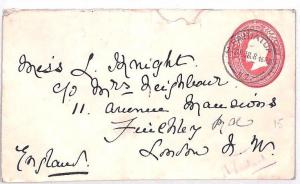 Miss L. Knight
c/o Mrs Neighbour
11. Avenue Mansions
Finchley Rd
London N.W
England
15